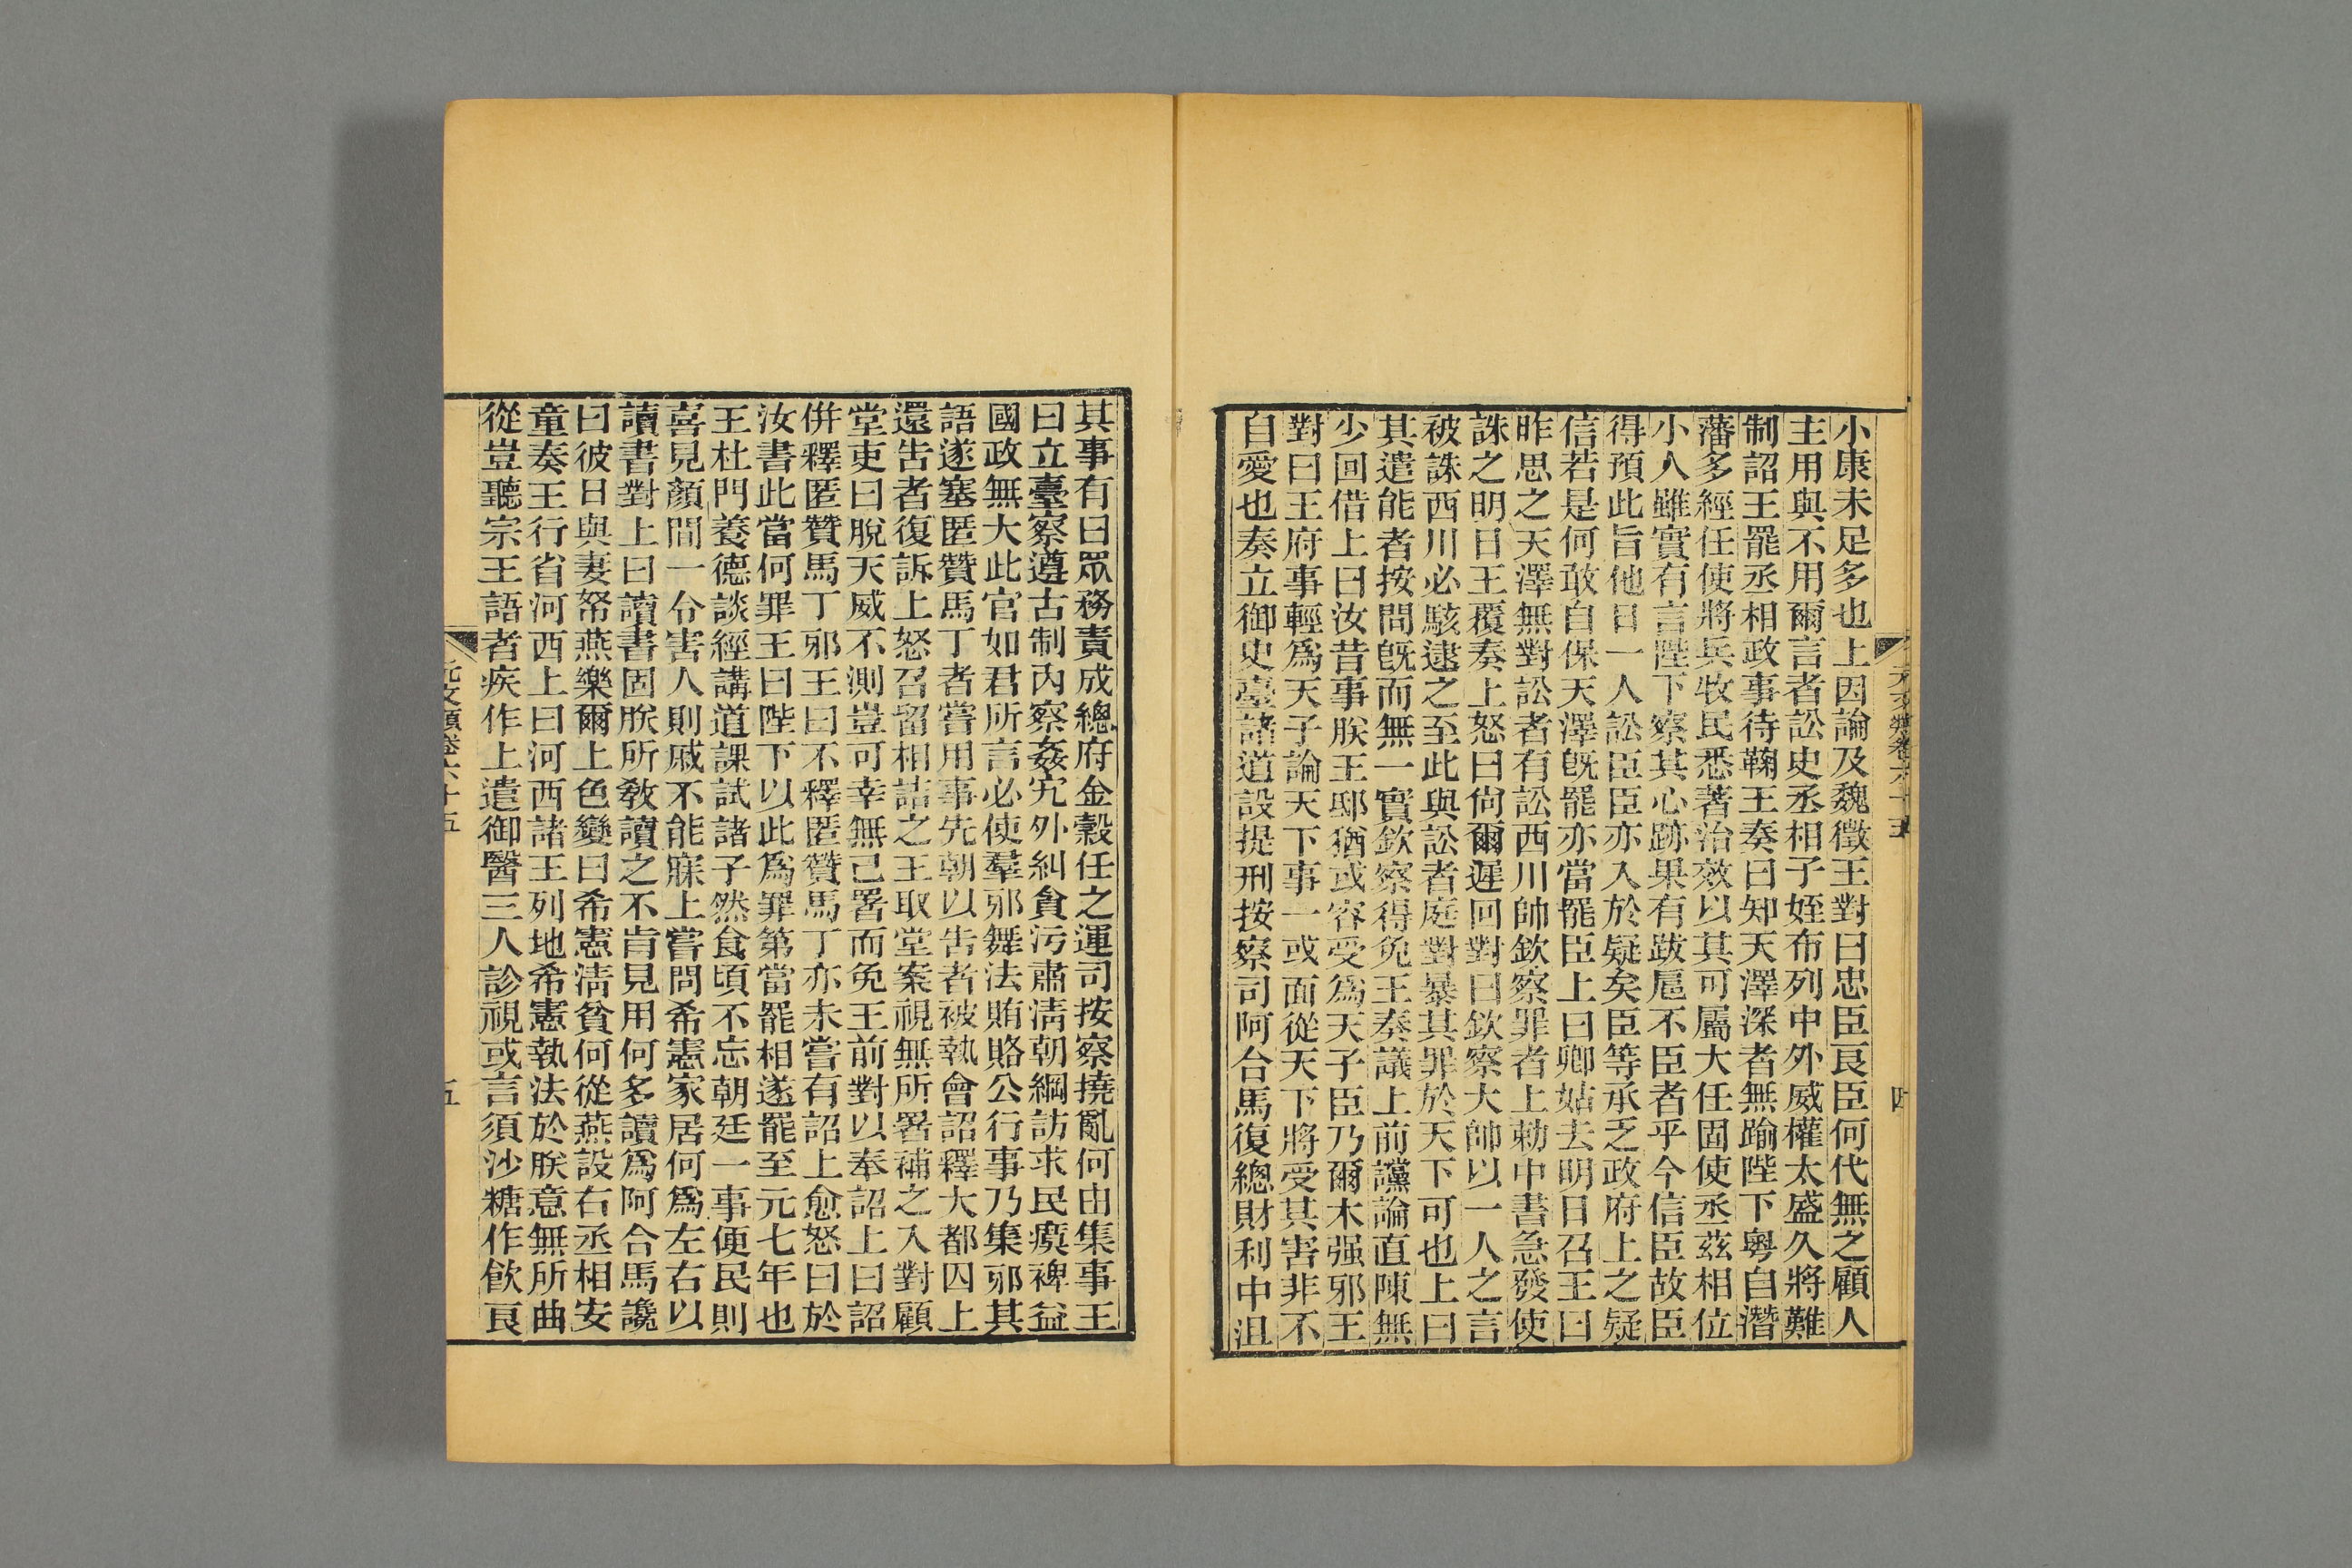 小康未足多也上因論及魏徵王對曰忠臣良臣何代無之顧人
主用與不用爾言者訟史丞相子姪布列中外威權太盛久將難
制詔王罷丞相政事待鞠王奏曰知天澤深者無踰陛下粤自潛
藩多經任使將兵牧民悉著治效以其可屬大任固使丞茲相位
小人雖實有言陛下察其心跡果有跋扈不臣者乎今信臣故臣
得預此旨他日一人訟臣臣亦入於疑矣臣等承乏政府上之疑
信若是何敢自保天澤旣罷亦當罷臣上曰卿姑去明日召王曰
昨思之天澤無對訟者有訟西川帥欽察罪者上勅中書急發使
誅之明日王覆奏上怒曰尙爾遲回對曰欽察大帥以一人之言
被誅西川必駭逮之至此與訟者庭對暴其罪於天下可也上曰
其遣能者按問旣而無一實欽察得免王奏議上前讜論直陳無
少回借上曰汝昔事朕王邸猶或容受爲天子臣乃爾木强邪王
對曰王府事輕爲天子論天下事一或面從天下將受其害非不
自愛也奏立御史臺諸道設提刑按察司阿合馬復總財利中沮
元文類卷六十五
四
其事有曰眾務責成總府金穀任之運司按察撓亂何由集事王
曰立臺察遵古制內察姦宄外糾貪污肅淸朝綱訪求民瘼裨益
國政無大此官如君所言必使羣邪舞法賄賂公行事乃集邪其
語遂塞匿贊馬丁者嘗用事先朝以告者被執會詔釋大都囚上
還告者復訴上怒召留相詰之王取堂案視無所署補之入對顧
堂吏曰脫天威不測豈可幸無已署而免王前對以奉詔上曰詔
併釋匿贊馬丁邪王曰不釋匿贊馬丁亦未嘗有詔上愈怒曰於
汝書此當何罪王曰陛下以此爲罪第當罷相遂罷至元七年也
王杜門養德談經講道課試諸子然食頃不忘朝廷一事便民則
喜見顏間一令害人則戚不能寐上嘗問希憲家居何爲左右以
讀書對上曰讀書固朕所教讀之不肯見用何多讀爲阿合馬讒
曰彼日與妻帑燕樂爾上色變曰希憲淸貧何從燕設右丞相安
童奏王行省河西上曰河西諸王列地希憲執法於朕意無所曲
從豈聽宗王語者疾作上遣御醫三人診視或言須沙糖作飮良
元文類卷六十五
五